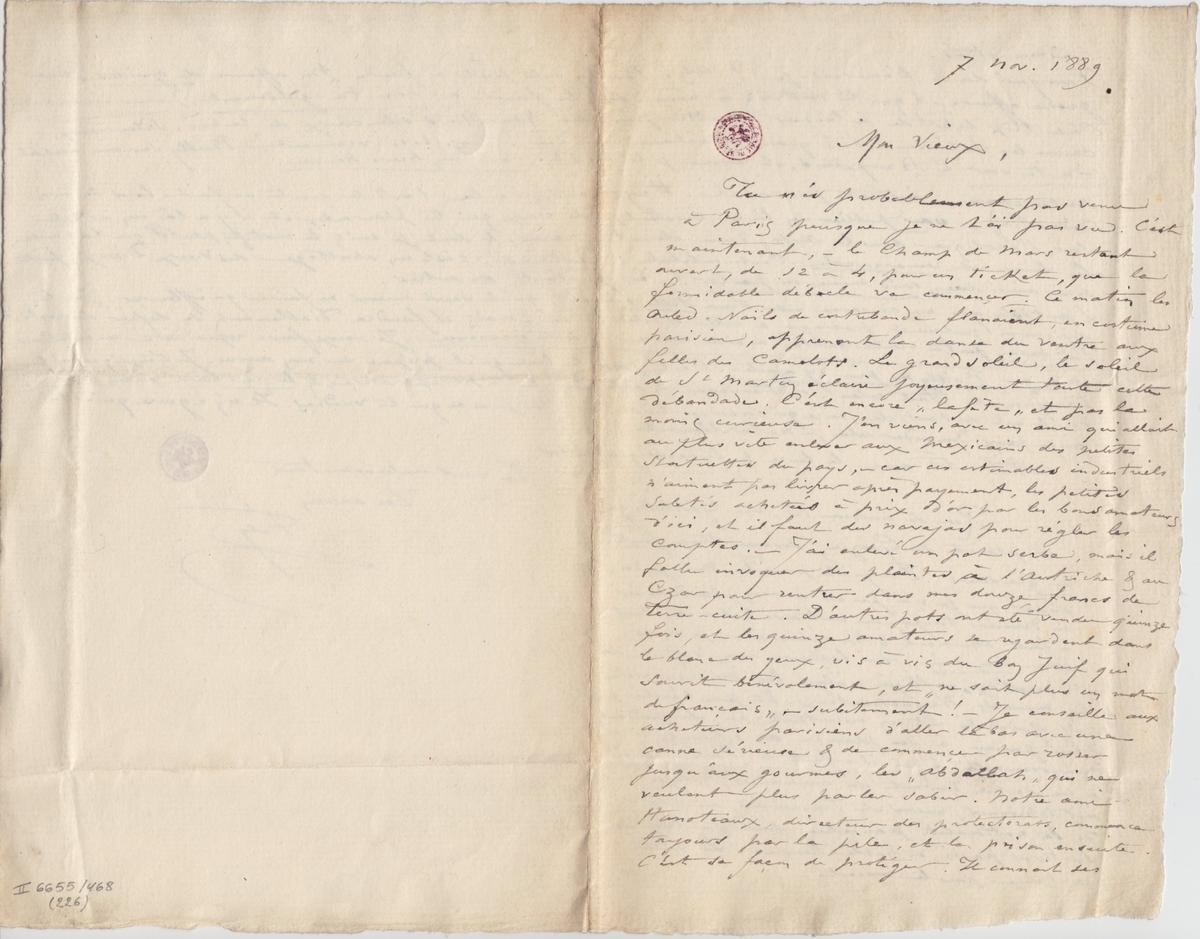 7 nov. 1889
Mon Vieux,
Tu n'es probablement pas venu
à Paris puisque je ne t'ai pas vu. C'est
maintenant, – le Champ de Mars restant
ouvert, de 12 à 4, pour un ticket, que la
formidable débacle va commencer. Ce matin les
Ouled-Naïls de contrebande flanaient, en costume
parisien, apprenant la danse du ventre aux
filles des Camelots. Le grand soleil, le soleil
de St Martin éclaire joyeusement toute cette
debandade. C'est encore „la fête„ et pas la
moins curieuse. J'en viens, avec un ami qui allait
au plus vite enlever aux Mexicains des petites
statuettes du pays, – car ces estimables industriels
n'aiment pas livrer après payement, les petites
saletés achetées à prix d'or par les bons amateurs
d'ici, et il faut des navajas pour régler les
comptes. – J'ai enlevé un pot serbe, mais il
fallu invoquer des plaintes à l'Autriche & au
Czar pour rentrer dans mes douze francs de
terre-cuite. D'autres pots ont été vendu quinze
fois, et les quinze amateurs se regardent dans
le blanc des yeux, vis à vis du Bon Juif qui
sourit bénévolement, et „ne sait plus un mot
de français„ – subitement! – Je conseille aux
acheteurs parisiens d'aller là bas avec une
canne sérieuse & de commencer par rosser
jusqu'aux gourmes, les „Abdallah„ qui ne
veulent plus parler sabir. Notre ami
Hanoteaux, directeur des protectorats, commence
toujours par la pile, et la prison ensuite.
C'est sa façon de protéger. Il connait ses
II 6655/468
(226)